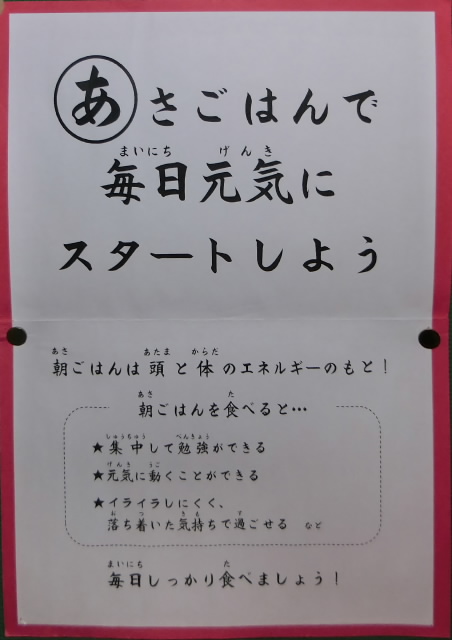 あさごはんで
まいにち げんき
毎日元気に
スタートしよう
あさ あたま からだ
朝ごはんは頭と体のエネルギーのもと！
あさ た
朝ごはんを食べると…
しゅうちゅう べんきょう
★集中して勉強ができる
げんき うご
★元気に動くことができる
★イライラしにくく、
お つ きも す
落ち着いた気持ちで過ごせる など
まいにち た
毎日しっかり食べましょう！